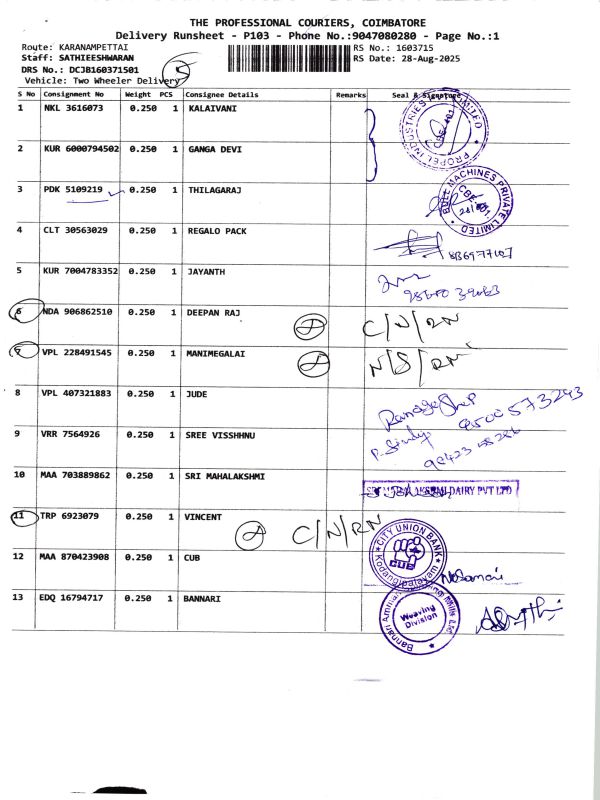 THE PROFESSIONAL COURIERS, COIMBATORE
Delivery Runsheet - P103 - Phone No.:9047080280 - Page No.:1
Route: KARANAMPETTAI RS No.: 1603715
Staff: SATHIEESHWARAN RS Date: 28-Aug-2025
DRS No.: DCJB160371501
Vehicle: Two Wheeler Delivery
S No Consignment No Weight PCS Consignee Details Remarks Seal & Signature
1 NKL 3616073 0.250 1 KALAIVANI
PROPEL INDUSTRIES LIMITED
CBE-401
2 KUR 6000794502 0.250 1 GANGA DEVI
3 PDK 5109219 0.250 1 THILAGARAJ
BULL MACHINES PRIVATE LIMITED
4 CLT 30563029 0.250 1 REGALO PACK
5 KUR 7004783352 0.250 1 JAYANTH
6 NDA 906862510 0.250 1 DEEPAN RAJ C/N/RN
7 VPL 228491545 0.250 1 MANIMEGALAI N/S/RN
8 VPL 407321883 0.250 1 JUDE
9500573293
9 VRR 7564926 0.250 1 SREE VISSHHNU
10 MAA 703889862 0.250 1 SRI MAHALAKSHMI
DAIRY PVT LTD
11 TRP 6923079 0.250 1 VINCENT C/N/RN
12 MAA 870423908 0.250 1 CUB
CITY UNION BANK
CUB
Kodangipalayam
13 EDQ 16794717 0.250 1 BANNARI
Weaving
Division